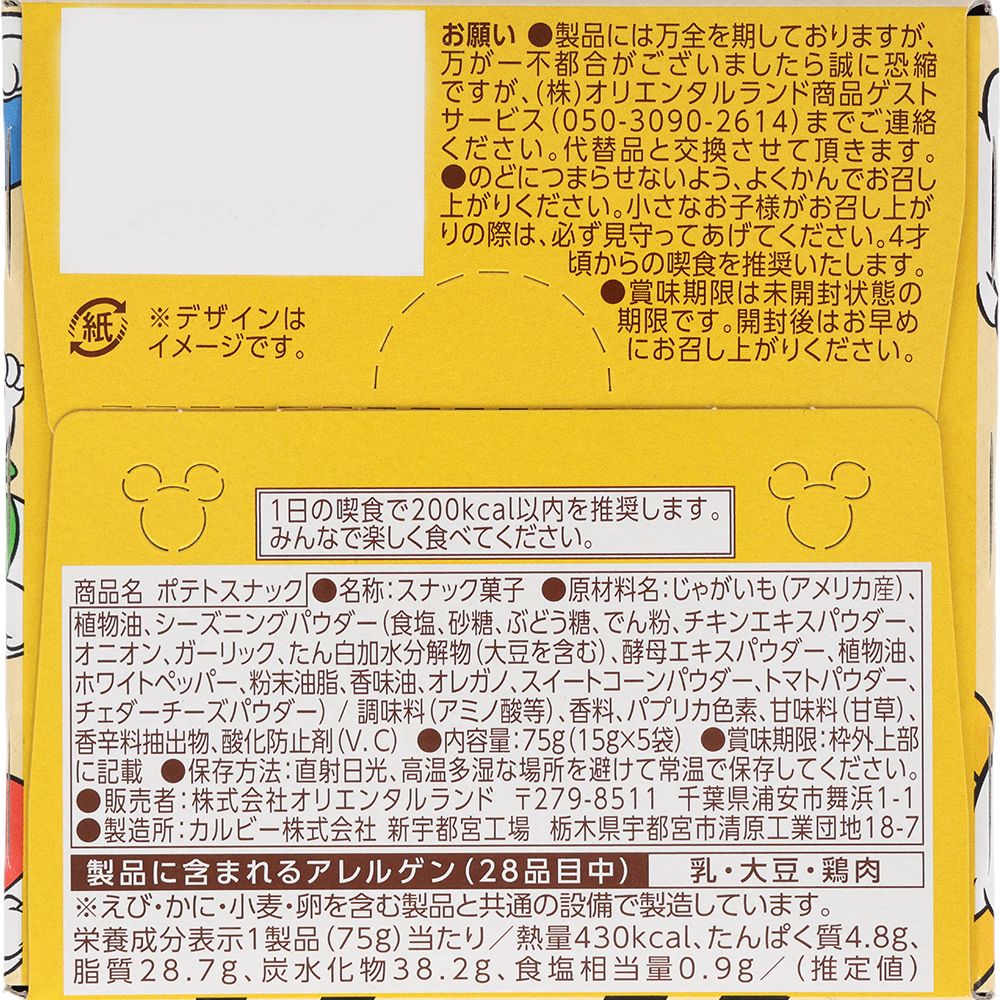 お願い ●製品には万全を期しておりますが、
万が一不都合がございましたら誠に恐縮
ですが、(株)オリエンタルランド商品ゲスト
サービス(050-3090-2614)までご連絡
ください。代替品と交換させて頂きます。
●のどにつまらせないよう、よくかんでお召し
上がりください。小さなお子様がお召し上が
りの際は、必ず見守ってあげてください。4才
頃からの喫食を推奨いたします。
●賞味期限は未開封状態の
期限です。開封後はお早め
にお召し上がりください。
紙
※デザインは
イメージです。
1日の喫食で200kcal以内を推奨します。
みんなで楽しく食べてください。
商品名 ポテトスナック ●名称:スナック菓子 ●原材料名:じゃがいも(アメリカ産)、
植物油、シーズニングパウダー(食塩、砂糖、ぶどう糖、でん粉、チキンエキスパウダー、
オニオン、ガーリック、たん白加水分解物(大豆を含む)、酵母エキスパウダー、植物油、
ホワイトペッパー、粉末油脂、香味油、オレガノ、スイートコーンパウダー、トマトパウダー、
チェダーチーズパウダー) / 調味料(アミノ酸等)、香料、パプリカ色素、甘味料(甘草)、
香辛料抽出物、酸化防止剤(V.C) ●内容量:75g(15g×5袋) ●賞味期限:枠外上部
に記載 ●保存方法:直射日光、高温多湿な場所を避けて常温で保存してください。
●販売者:株式会社オリエンタルランド 〒279-8511 千葉県浦安市舞浜1-1
●製造所:カルビー株式会社 新宇都宮工場 栃木県宇都宮市清原工業団地18-7
製品に含まれるアレルゲン(28品目中) 乳・大豆・鶏肉
※えび・かに・小麦・卵を含む製品と共通の設備で製造しています。
栄養成分表示1製品(75g)当たり/熱量430kcal、たんぱく質4.8g、
脂質28.7g、炭水化物38.2g、食塩相当量0.9g/(推定値)